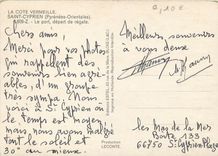 LA COTE VERMEILLE
SAINT-CYPRIEN (Pyrénées-Orientales)
Le port, départ de régate.
Chers amis,
Merci pour vos photos
qui rappellent des
souvenirs bien agré-
ables, d'un groupe
très sympa. Nous
voici à St Cyprien
le temps est moyen
mais chaud. Pas
de soleil et
30° au mieux.
Meilleurs souvenirs
à vous deux
Production
LECONTE
Les Mas de la Mer
Boite 133
66750 St Cyprien Plage